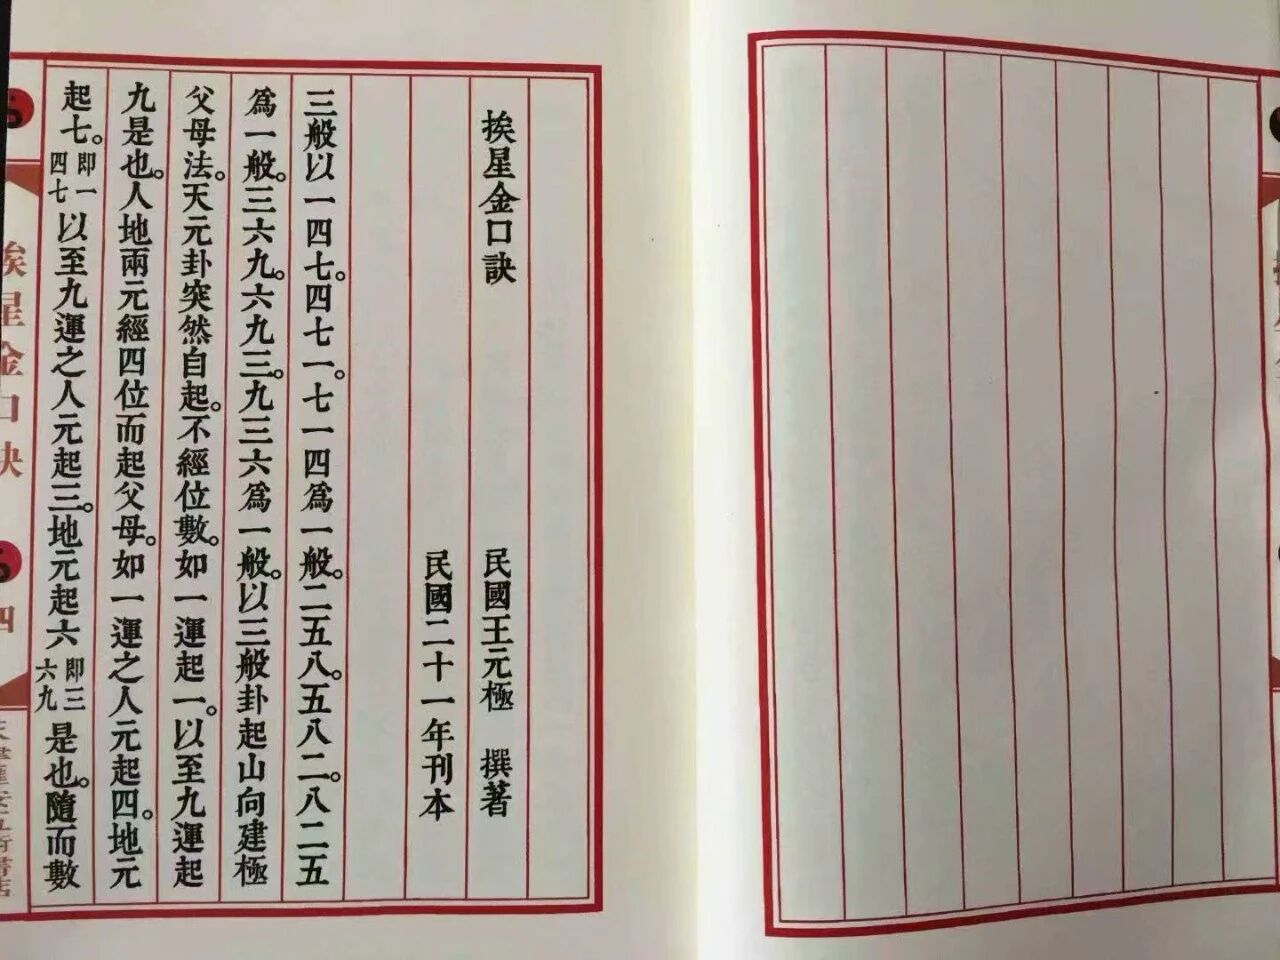 挨星金口訣
民國王元極 撰著
民國二十一年刊本
三般以一四七。四七一。七一四爲一般。二五八。五八二。八二五
爲一般。三六九。六九三。九三六爲一般。以三般卦起山向建極
父母法。天元卦突然自起。不經位數。如一運起一。以至九運起
九是也。人地兩元經四位而起父母。如一運之人元起四。地元
起七。即一四七以至九運之人元起三。地元起六即三六九是也。隨而數
挨星金口訣
四